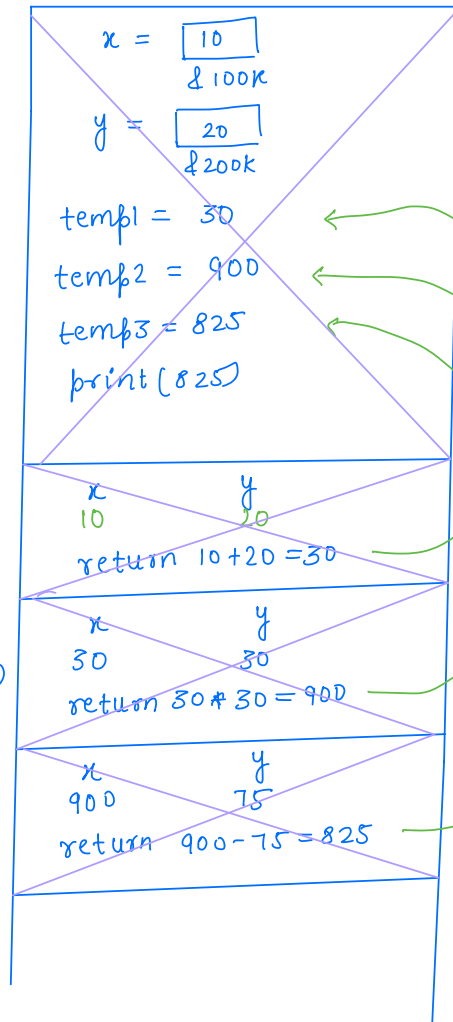 x = 10
&100K
y = 20
&200K
temp1 = 30
temp2 = 900
temp3 = 825
print(825)
x y
10 20
return 10+20=30
x y
30 30
return 30*30=900
x y
900 75
return 900-75=825